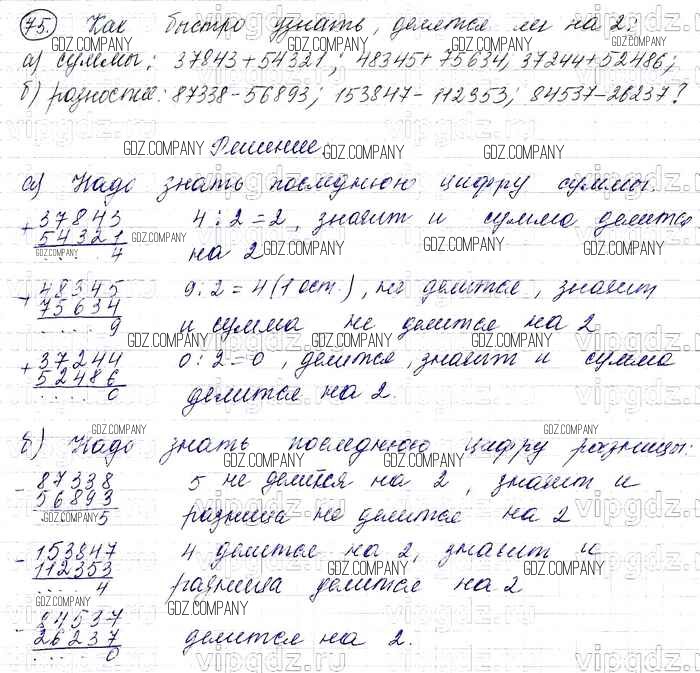 75. Как быстро узнать, делятся ли на 2:
а) суммы: 37843+54321; 48345+75634; 37244+52486;
б) разности: 87338-56893; 153847-112353; 84537-26237?
Решение.
а) Надо знать последнюю цифру суммы.
+ 37843
54321
....4
4:2=2, значит и сумма делится
на 2
+ 48345
75634
....9
9:2=4(1 ост.), не делится, значит
и сумма не делится на 2
+ 37244
52486
....0
0:2=0, делится, значит и сумма
делится на 2.
б) Надо знать последнюю цифру разницы:
- 87338
56893
....5
5 не делится на 2, значит и
разница не делится на 2
- 153847
112353
....4
4 делится на 2, значит и
разница делится на 2
- 84537
26237
....0
делится на 2.
GDZ.COMPANY
vipgdz.ru